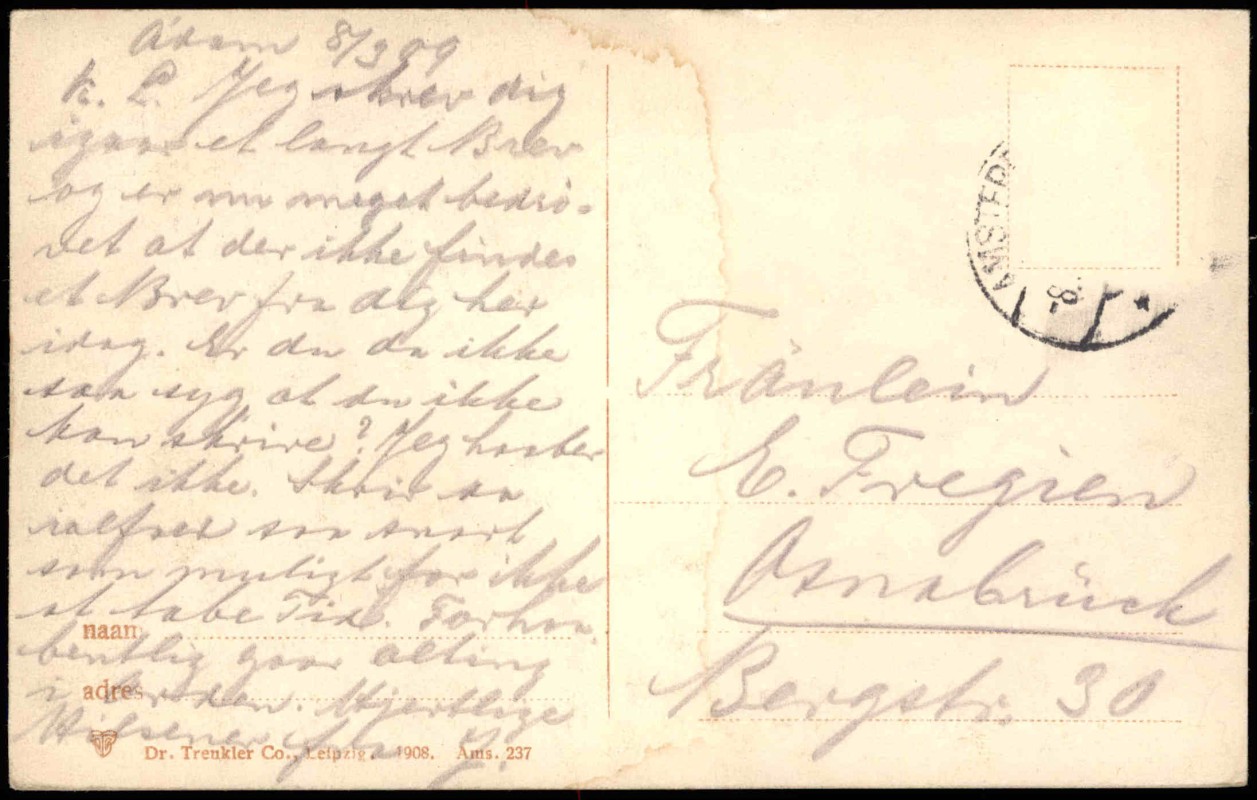 Adam 8/3 09
K. L. Jeg skrev dig
igaar et langt Brev
og er nu meget bedrö-
vet at der ikke findes
et Brev fra dig her
idag. Er du da ikke
saa syg at du ikke
kan skrive? Jeg haaber
det ikke. Skriv da
ialfald saa snart
som muligt for ikke
at tabe Tid. Forhaa-
bentlig gaar alting
i Orden. Hjertlige
Hilsener fra J.
naam
adres
Dr. Trenkler Co., Leipzig. 1908. Ams. 237
AMSTERD
8
Fräulein
E. Fregien
Osnabrück
Bergstr. 30